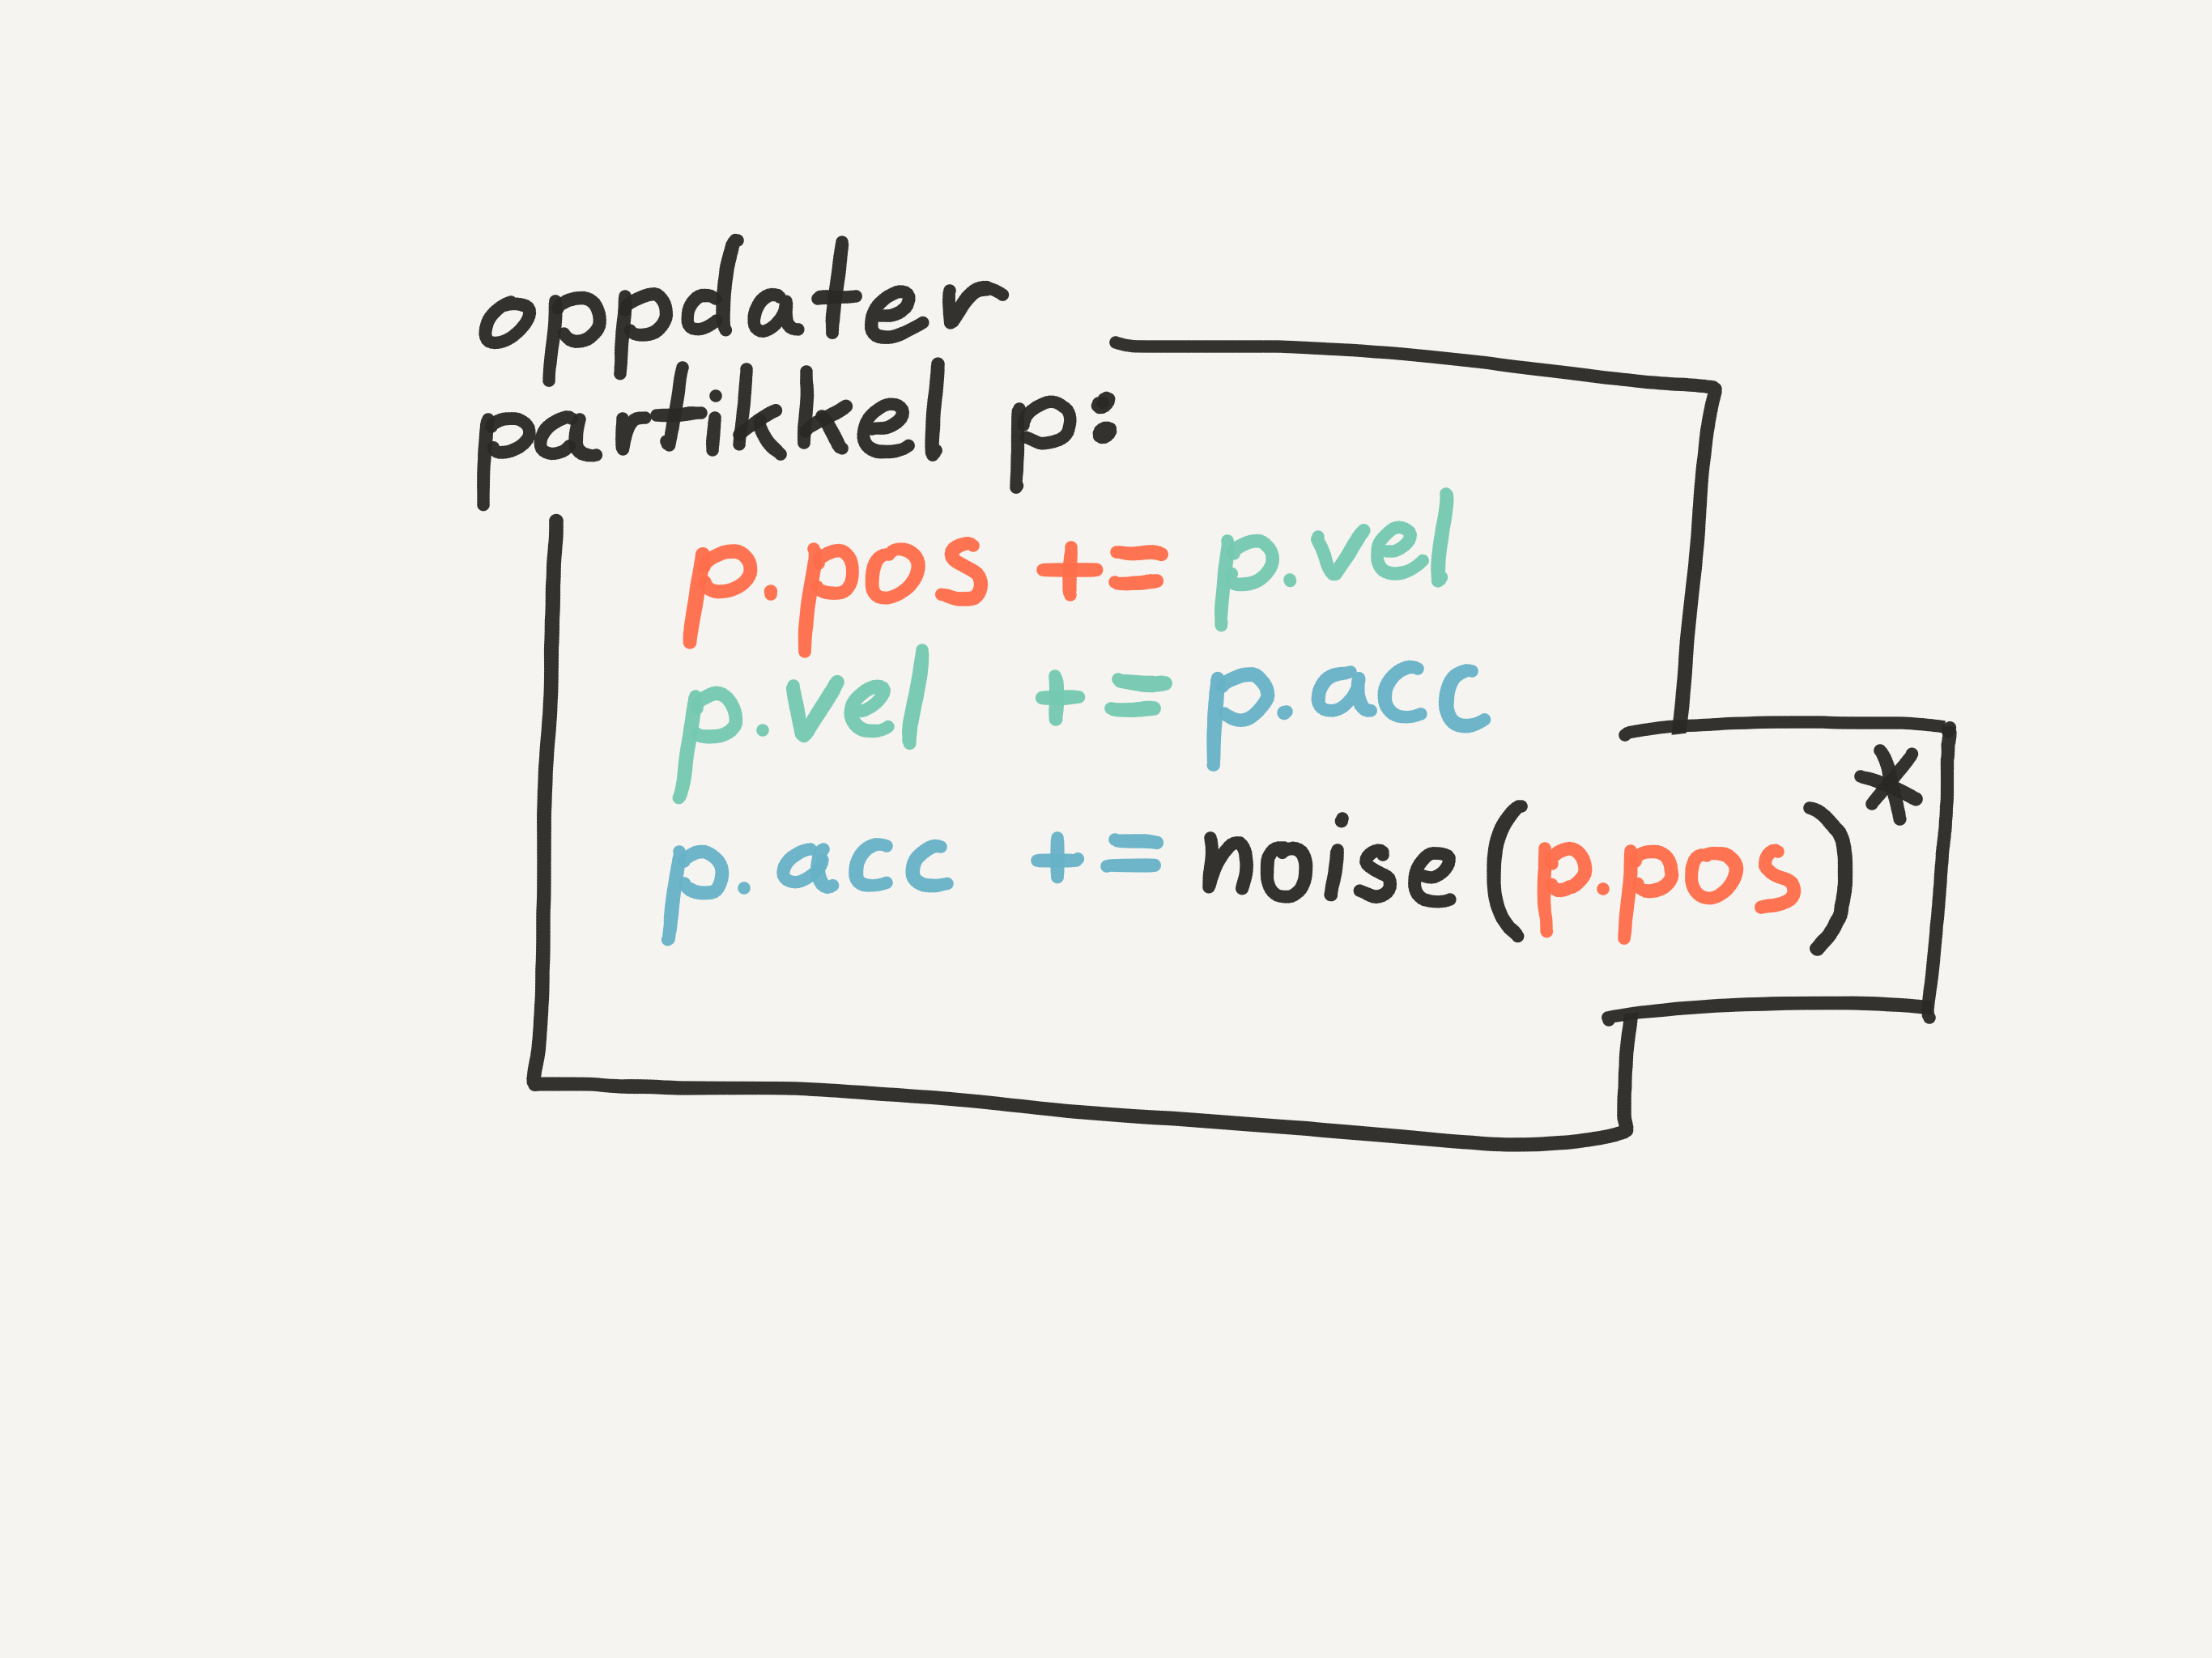 oppdater
partikkel p:
p.pos += p.vel
p.vel += p.acc
p.acc += noise(p.pos)*